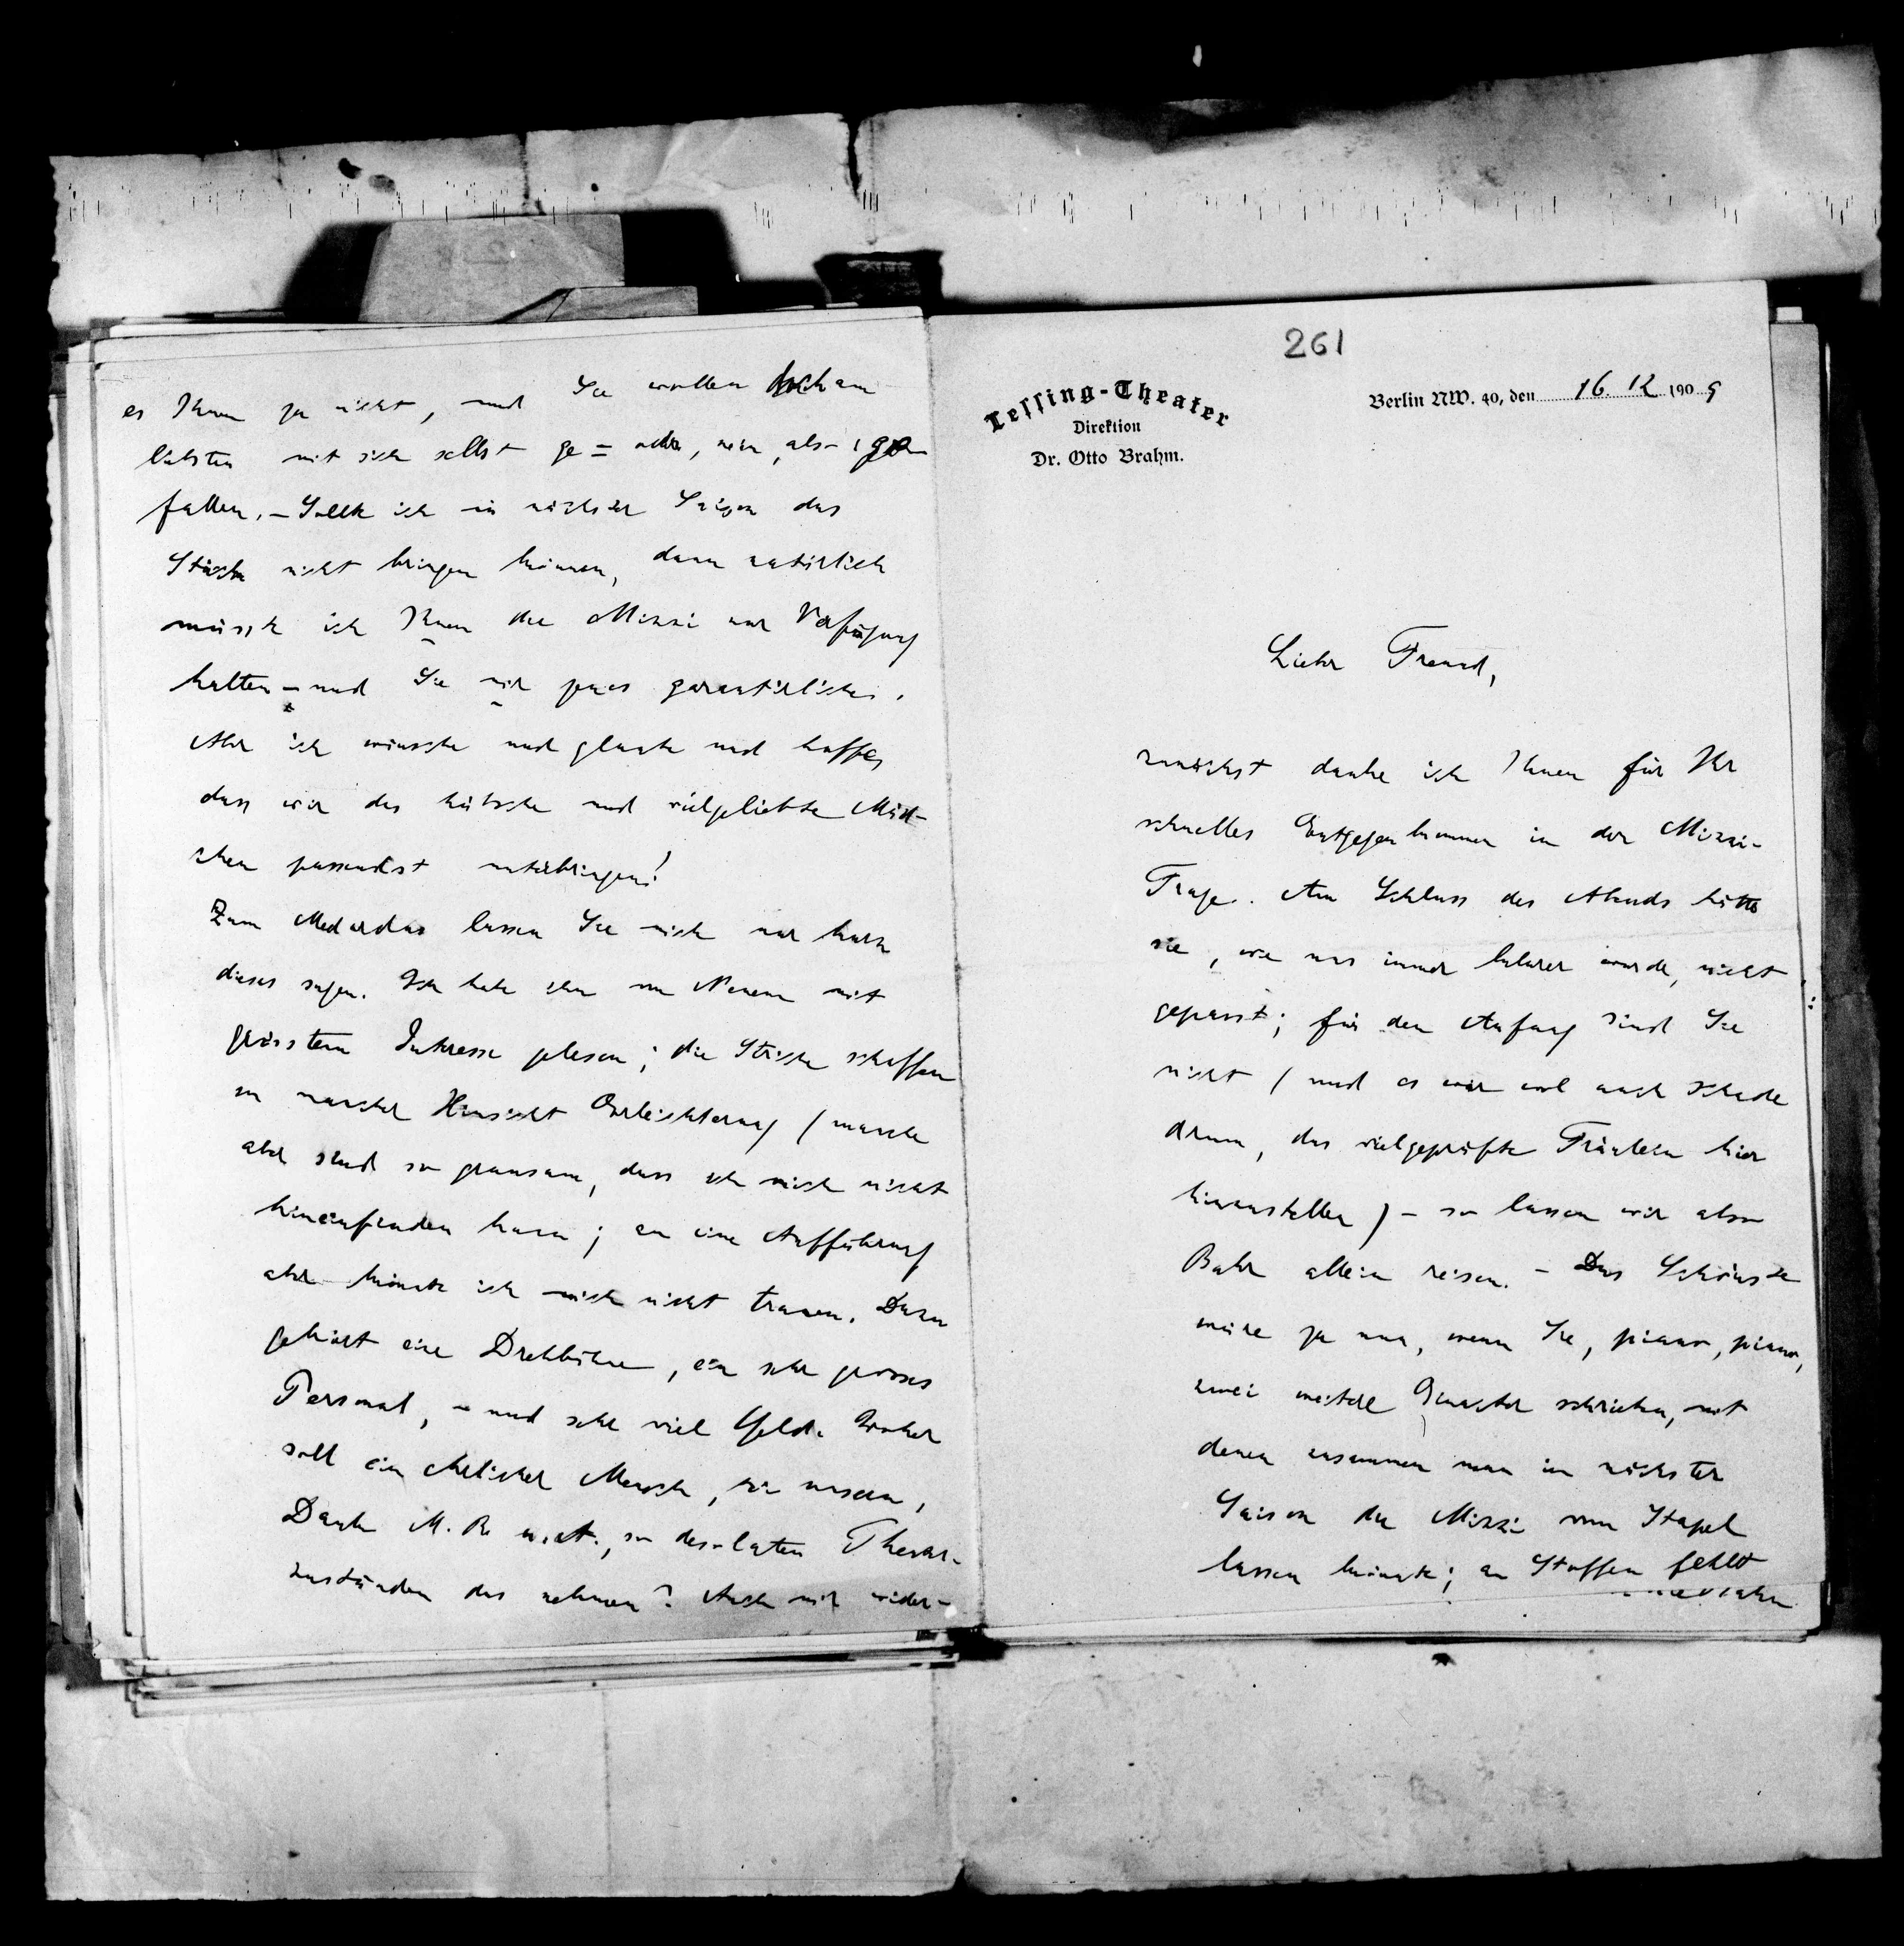 261
Lessing-Theater
Direktion
Dr. Otto Brahm.
Berlin NW. 40, den 16. 12. 1909
Lieber Freund,
zunächst danke ich Ihnen für Ihr
schnelles Entgegenkommen in der Mizzi-
Frage. Am Schluss des Abends hätte
sie, wie uns immer klarer wurde, nicht
gepasst; für den Anfang sind Sie
nicht (und es wär wol auch schade
drum, das vielgeprüfte Fräulein hier
hinaustellen) – so lassen wir also
Bahr allein reisen. – Das Schönste
wäre ja nun, wenn Sie, piano, piano,
zwei weitere Einakter schrieben, mit
denen zusammen man in nächster
Saison die Mizzi vom Stapel
lassen könnte; an Stoffen fehlt
es Ihnen ja nicht, und Sie wollen doch am
liebsten mit sich selbst ge= oder, nein, also:
fallen. – Sollte ich in nächster Saison das
Stück nicht bringen können, dann natürlich
müsste ich Ihnen die Mizzi zur Verfügung
halten – und Sie mir jenes garantirliche.
Aber ich wünsche und glaube und hoffe,
dass wir das hübsche und vielgeliebte Mäd-
chen passendst unterbringen!
Zum Medardus lassen Sie mich nur kurz
dieses sagen. Ich habe ihn von Neuem mit
grösstem Interesse gelesen; die Striche schaffen
in mancher Hinsicht Erleichterung (manche
aber sind so grausam, dass ich mich nicht
hineinfinden kann; an eine Aufführung
aber könnte ich mich nicht trauen. Dazu
gehört eine Drehbühne, ein sehr grosses
Personal, – und sehr viel Geld. Woher
soll ein ehrlicher Mensch, in unseren,
Dank M. R. u. A., so desolaten Theater-
zuständen das nehmen? Auch mir wider-